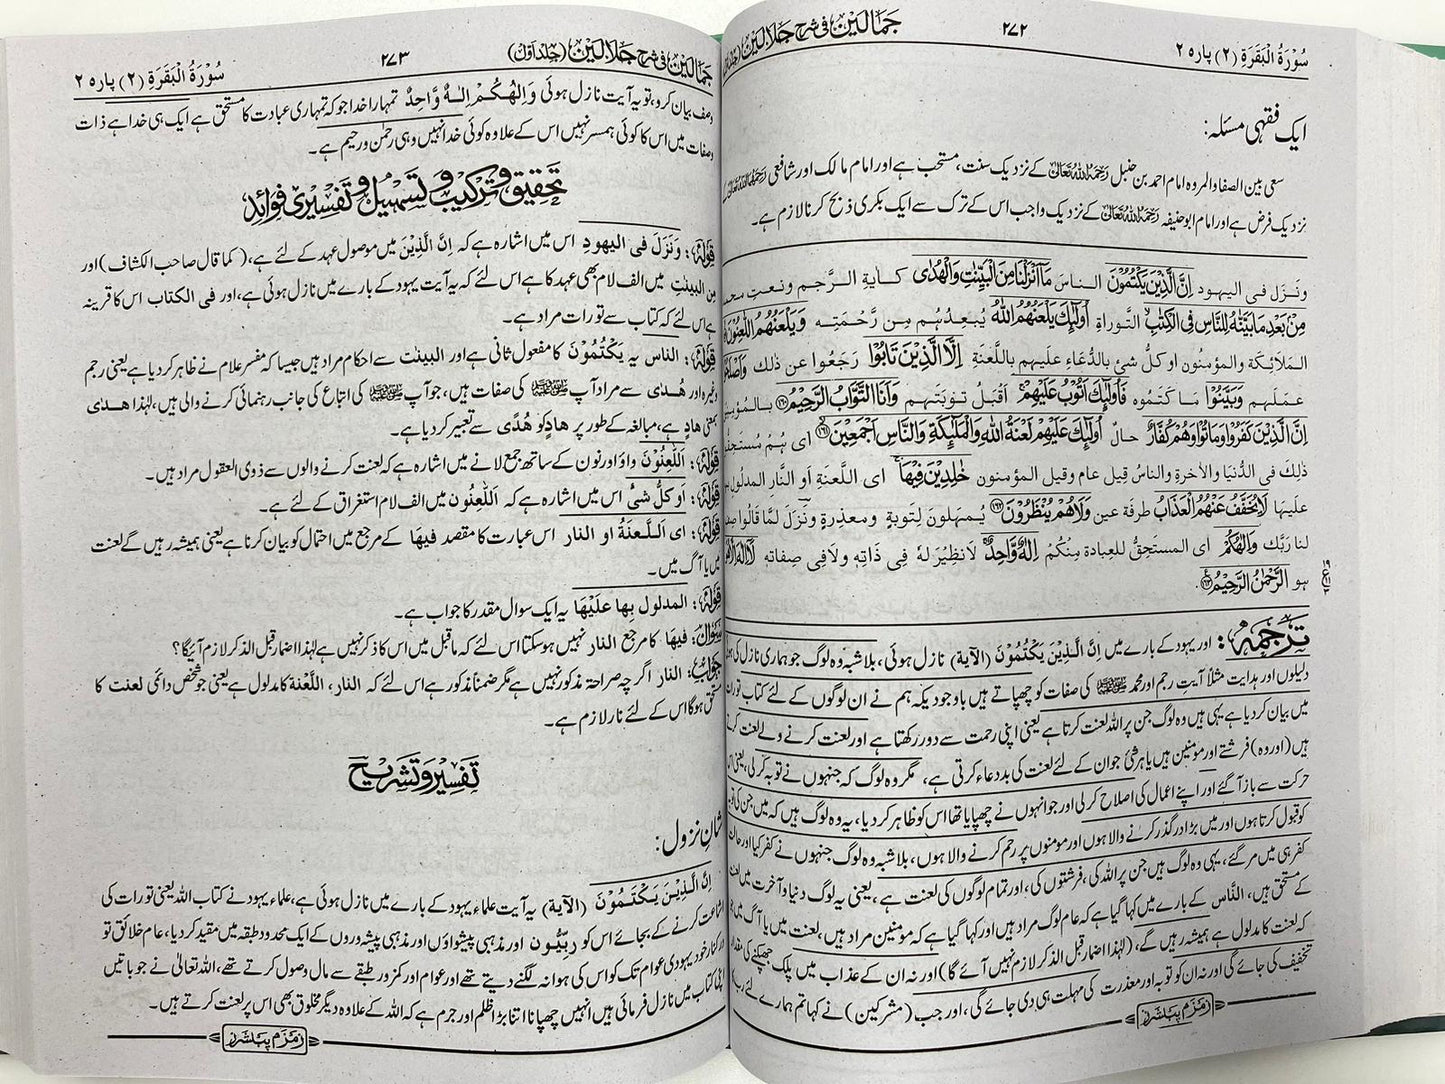 سُوْرَةُ الْبَقَرَةِ (٢) پارہ ٢
٢٧٢
جَمَالَيْن فی شرح جَلَالَيْن (جلد اول)
ایک فقہی مسئلہ:
سعی بین الصفا والمروہ امام احمد بن حنبل رَحِمَهُ اللهُ تَعَالٰی کے نزدیک سنت، مستحب ہے اور امام مالک اور شافعی
نزدیک فرض ہے اور امام ابوحنیفہ رَحِمَهُ اللهُ تَعَالٰی کے نزدیک واجب اس کے ترک سے ایک بکری ذبح کرنا لازم ہے۔
ونَزَل فی الیهود اِنَّ الَّذِیْنَ یَکْتُمُوْنَ الناسَ مَآ اَنْزَلْنَا مِنَ الْبَیِّنٰتِ وَالْهُدٰی کآیةِ الرَّجمِ ونعتِ
مِنْ بَعْدِ مَا بَیَّنّٰهُ لِلنَّاسِ فِی الْکِتٰبِ التَّوراةِ اُولٰٓئِکَ یَلْعَنُهُمُ اللّٰهُ یُبعِدُهُم مِن رَّحْمَتِه وَیَلْعَنُهُمُ اللّٰعِنُوْنَ
المَلائِکة والمؤمنون او کلُّ شئٍ بالدُّعَاءِ عَلَیهم باللَّعنَةِ اِلَّا الَّذِیْنَ تَابُوْا رَجَعُوا عن ذٰلك وَاَصْلَحُوْا
عملَهم وَبَیَّنُوْا مَا کتمُوه فَاُولٰٓئِکَ اَتُوْبُ عَلَیْهِمْ اَقْبَلُ توبَتَهم وَاَنَا التَّوَّابُ الرَّحِیْمُ ﴿١٦٠﴾
اِنَّ الَّذِیْنَ کَفَرُوْا وَمَاتُوْا وَهُمْ کُفَّارٌ حالٌ اُولٰٓئِکَ عَلَیْهِمْ لَعْنَةُ اللّٰهِ وَالْمَلٰٓئِکَةِ وَالنَّاسِ اَجْمَعِیْنَ ﴿١٦١﴾ ای هُم
ذٰلِك فی الدُّنیَا والاٰخرةِ والناسُ قِیل عام وقیل المؤمنون خٰلِدِیْنَ فِیْهَا ای اللَّعنةِ اَو النَّارِ المدلولِ
علَیهَا لَا یُخَفَّفُ عَنْهُمُ الْعَذَابُ طرفة عین وَلَا هُمْ یُنْظَرُوْنَ ﴿١٦٢﴾ یُمهلَون لِتوبةٍ ومعذِرةٍ ونَزَل لَمَّا قالُوا صِف
لنا رَبَّك وَاِلٰهُکُمْ ای المستَحِقُّ للعبادة مِنکُمْ اِلٰهٌ وَّاحِدٌ لَانظِیْرَ لَهٗ فِی ذَاتِهٖ ولَافِی صفَاتِه لَآ اِلٰهَ اِلَّا
هو الرَّحْمٰنُ الرَّحِیْمُ ﴿١٦٣﴾
تَرْجَمَہ: اور یہود کے بارے میں اِنَّ الَّذِیْنَ یَکْتُمُوْنَ (الآیۃ) نازل ہوئی، بلاشبہ وہ لوگ جو ہماری نازل کی
دلیلوں اور ہدایت مثلاً آیتِ رجم اور محمد ﷺ کی صفات کو چھپاتے ہیں باوجودیکہ ہم نے ان لوگوں کے لئے کتاب تورات
میں بیان کردیا ہے یہی ہیں وہ لوگ جن پر اللہ لعنت کرتا ہے یعنی اپنی رحمت سے دور رکھتا ہے اور لعنت کرنے والے لعنت کرتے
ہیں (اور وہ) فرشتے اور مومنین ہیں یا ہر شئ جو ان کے لئے لعنت کی بددعاء کرتی ہے، مگر وہ لوگ کہ جنہوں نے توبہ کرلی، یعنی
حرکت سے باز آگئے اور اپنے اعمال کی اصلاح کرلی اور جو انہوں نے چھپایا تھا اس کو ظاہر کردیا، یہ وہ لوگ ہیں کہ میں جن کی
کو قبول کرتا ہوں اور میں بڑا درگذر کرنے والا ہوں اور مومنوں پر رحم کرنے والا ہوں، بلاشبہ وہ لوگ جنہوں نے کفر کیا اور
کفر ہی میں مرگئے، یہی وہ لوگ ہیں جن پر اللہ کی، فرشتوں کی، اور تمام لوگوں کی لعنت ہے، یعنی یہ لوگ دنیا و آخرت میں لعنت
کے مستحق ہیں، النَّاس کے بارے میں کہا گیا ہے کہ عام لوگ مراد ہیں اور کہا گیا ہے کہ مومنین مراد ہیں، لعنت میں یا آگ میں
کہ لعنت کا مدلول ہے ہمیشہ رہیں گے، (لہٰذا اضمار قبل الذکر لازم نہیں آئے گا) اور نہ ان کے عذاب میں پلک جھپکنے کی
تخفیف کی جائے گی اور نہ ان کو توبہ اور معذرت کی مہلت ہی دی جائے گی، اور جب (مشرکین) نے کہا تم ہمارے لئے
زمزم پبلشرز
جَمَالَيْن فی شرح جَلَالَيْن (جلد اول)
٢٧٣
سُوْرَةُ الْبَقَرَةِ (٢) پارہ ٢
وصف بیان کرو، تو یہ آیت نازل ہوئی وَاِلٰهُکُمْ اِلٰـهٌ وَّاحِدٌ تمہارا خدا جو کہ تمہاری عبادت کا مستحق ہے ایک ہی خدا ہے ذات
وصفات میں اس کا کوئی ہمسر نہیں اس کے علاوہ کوئی خدا نہیں وہی رحمٰن ورحیم ہے۔
تحقیق و ترکیب و تسہیل و تفسیری فوائد
قَوْلُہٗ: وَنَزَلَ فی الیهودِ اس میں اشارہ ہے کہ اِنَّ الَّذِیْنَ میں موصول عہد کے لئے ہے، (کما قال صاحب الکشاف) اور
مِن البینٰتِ میں الف لام بھی عہد کا ہے اس لئے کہ یہ آیت یہود کے بارے میں نازل ہوئی ہے، اور فی الکتاب اس کا قرینہ
ہے اس لئے کہ کتاب سے تورات مراد ہے۔
قَوْلُہٗ: الناس یہ یَکْتُمُوْنَ کا مفعول ثانی ہے اور البینٰت سے احکام مراد ہیں جیسا کہ مفسر علام نے ظاہر کردیا ہے یعنی رجم
وغیرہ اور هُدٰی سے مراد آپ ﷺ کی صفات ہیں، جو آپ ﷺ کی اتباع کی جانب رہنمائی کرنے والی ہیں، لہٰذا هدٰی
بمعنی هادٍ ہے، مبالغہ کے طور پر هادٍ کو هُدًی سے تعبیر کردیا ہے۔
قَوْلُہٗ: اَللّٰعِنُوْنَ واؤ اور نون کے ساتھ جمع لانے میں اشارہ ہے کہ لعنت کرنے والوں سے ذوی العقول مراد ہیں۔
قَوْلُہٗ: او کلُّ شئٍ اس میں اشارہ ہے کہ اَللّٰعِنُون میں الف لام استغراق کے لئے ہے۔
قَوْلُہٗ: ای اَللَّـعـنَةُ او النار اس عبارت کا مقصد فیهَا کے مرجع میں احتمال کو بیان کرنا ہے یعنی ہمیشہ رہیں گے لعنت
میں یا آگ میں۔
قَوْلُہٗ: المدلول بِها علَیْهَا یہ ایک سوال مقدر کا جواب ہے۔
سُؤَال: فیهَا کا مرجع النار نہیں ہوسکتا اس لئے کہ ماقبل میں اس کا ذکر نہیں ہے لہٰذا اضمار قبل الذکر لازم آئیگا؟
جَوَاب: النار اگرچہ صراحۃ مذکور نہیں ہے مگر ضمناً مذکور ہے اس لئے کہ النار، اللَّعْنة کا مدلول ہے یعنی جو شخص دائمی لعنت کا
مستحق ہوگا اس کے لئے نار لازم ہے۔
تفسیر و تشریح
شانِ نزول:
اِنَّ الَّـذِیْـنَ یَـکْتُـمُوْنَ (الآیة) یہ آیت علماء یہود کے بارے میں نازل ہوئی ہے، علماء یہود نے کتاب اللہ یعنی تورات کی
اشاعت کرنے کے بجائے اس کو ربِیُّون اور مذہبی پیشواؤں اور مذہبی پیشہ وروں کے ایک محدود طبقہ میں مقید کردیا، عام خلائق تو
درکنار خود یہودی عوام تک کو اس کی ہوا نہ لگنے دیتے تھے اور عوام اور کمزور طبقے سے مال وصول کرتے تھے، اللہ تعالیٰ نے جو باتیں
اپنی کتاب میں نازل فرمائی ہیں انہیں چھپانا اتنا بڑا ظلم اور جرم ہے کہ اللہ کے علاوہ دیگر مخلوق بھی اس پر لعنت کرتے ہیں۔
زمزم پبلشرز